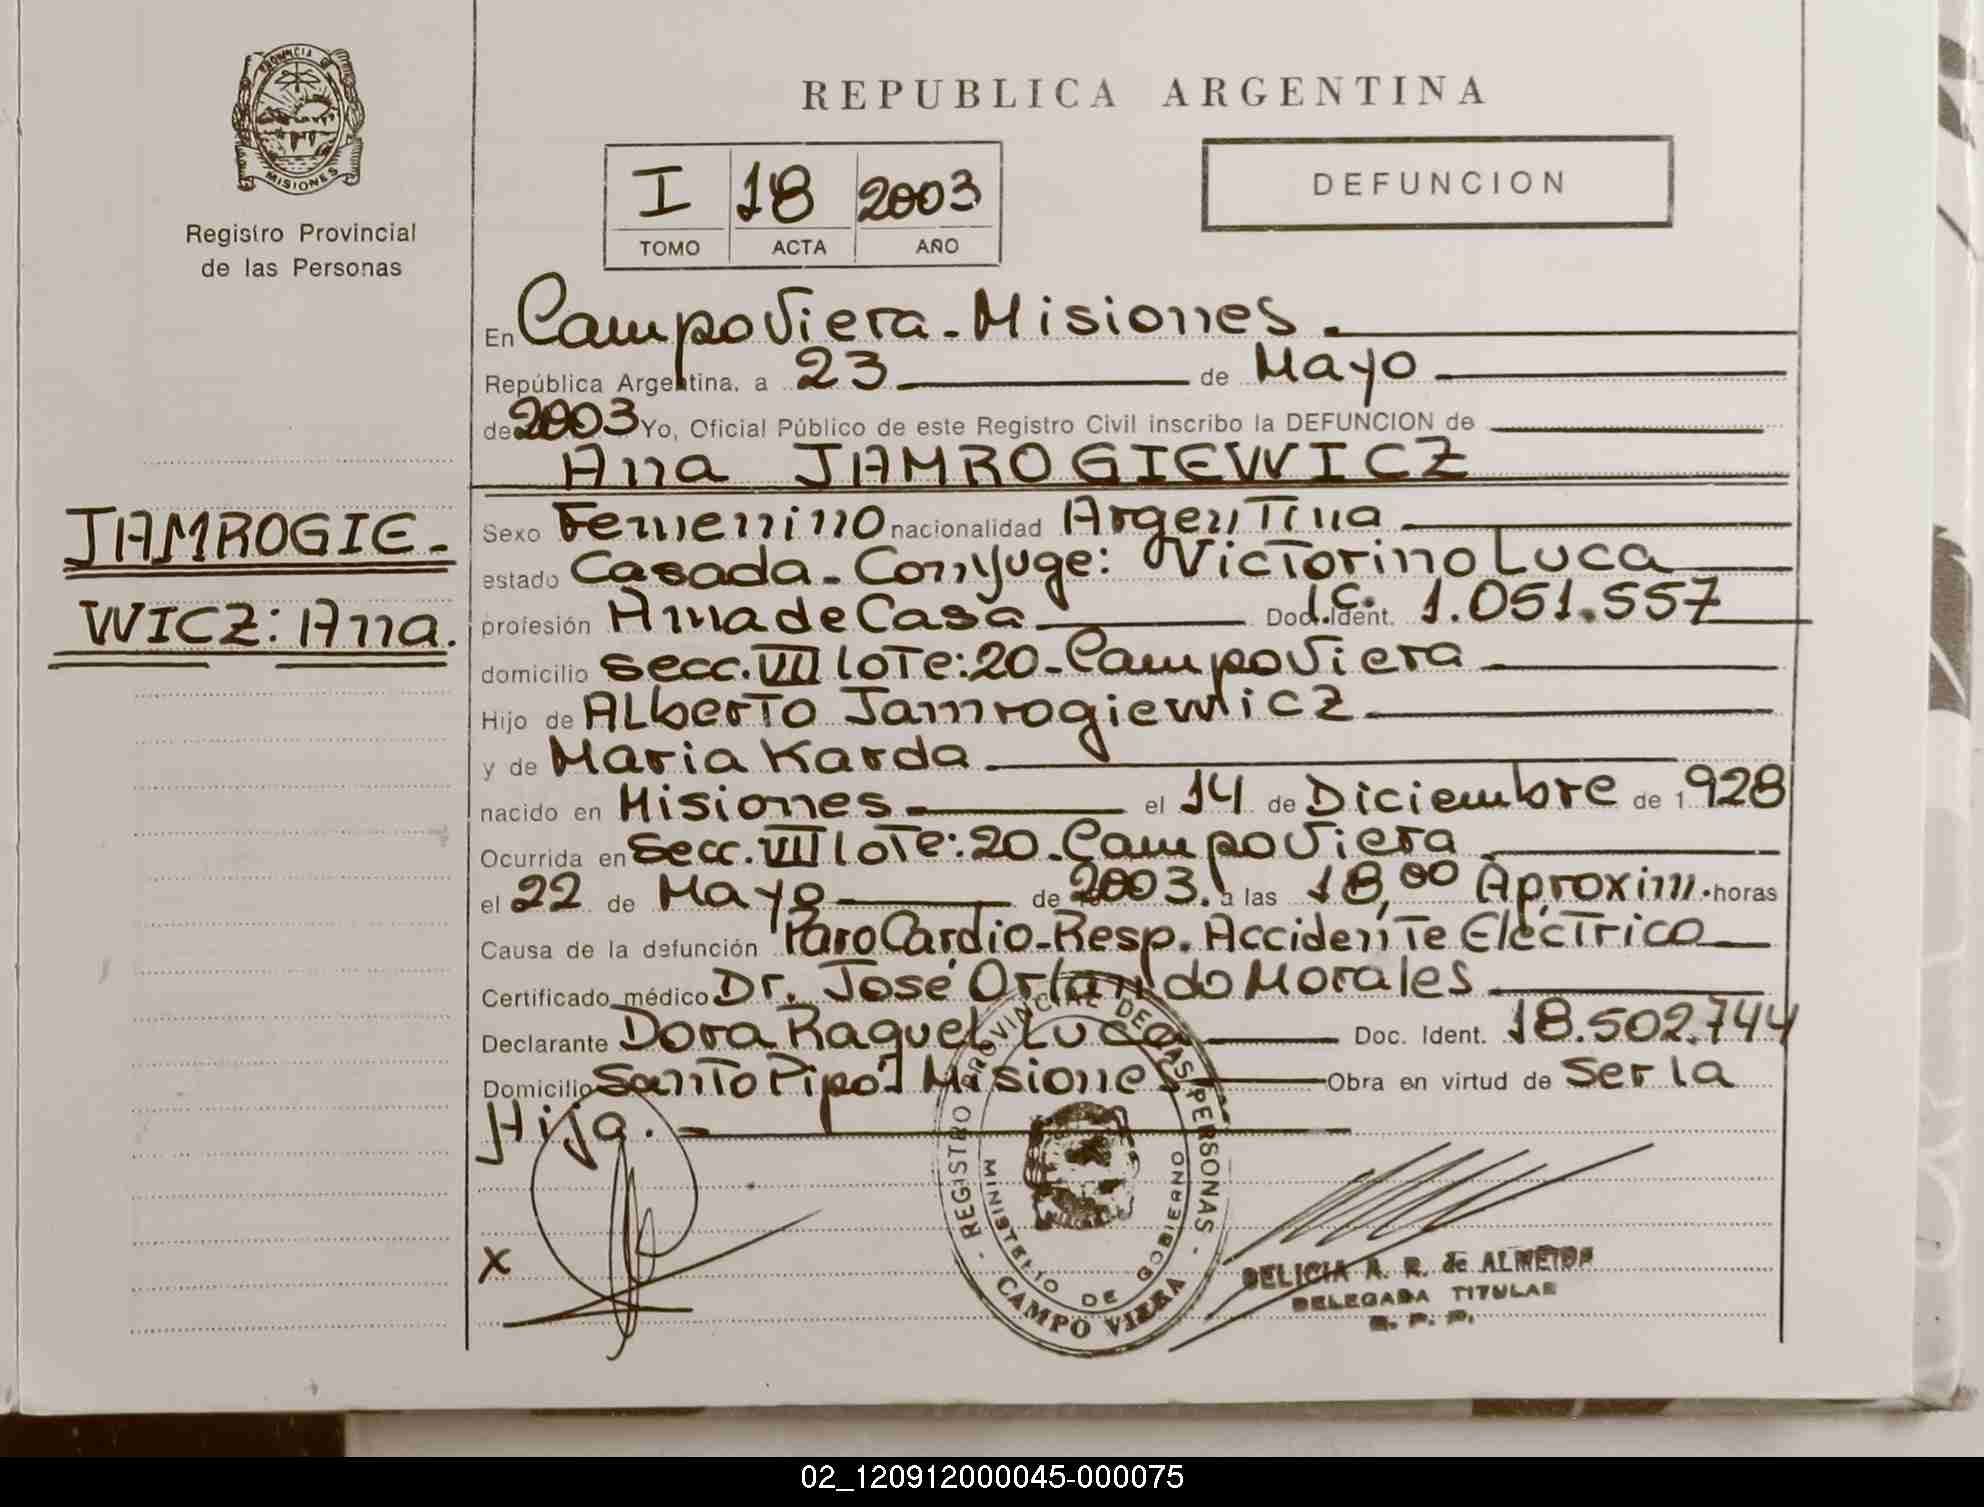 PROVINCIA DE
MISIONES
Registro Provincial
de las Personas
JAMROGIE-
WICZ: Ana.
REPUBLICA ARGENTINA
I 18 2003
TOMO ACTA AÑO
DEFUNCION
En Campo Viera - Misiones.
República Argentina, a 23 de Mayo
de 2003 Yo, Oficial Público de este Registro Civil inscribo la DEFUNCION de
Ana JAMROGIEWICZ
Sexo Femenino nacionalidad Argentina
estado Casada - Conyuge: Victorino Luca
profesión Ama de Casa Doc. Ident. L.C. 1.051.557
domicilio secc. VII lote: 20 - Campo Viera
Hijo de Alberto Jamrogiewicz
y de Maria Karda
nacido en Misiones el 14 de Diciembre de 1928
Ocurrida en Secc. VII lote: 20 - Campo Viera
el 22 de Mayo de 2003. a las 18,00 Aproxim. horas
Causa de la defunción Paro Cardio - Resp. Accidente Eléctrico
Certificado médico Dr. José Orlando Morales
Declarante Dora Raquel Luca Doc. Ident. 18.502.744
Domicilio Santo Pipó - Misiones Obra en virtud de Ser la
Hija.
x
- REGISTRO PROVINCIAL DE LAS PERSONAS -
MINISTERIO DE GOBIERNO
CAMPO VIERA
DELICIA A. R. de ALMEIDA
DELEGADA TITULAR
R. P. P.
02_120912000045-000075